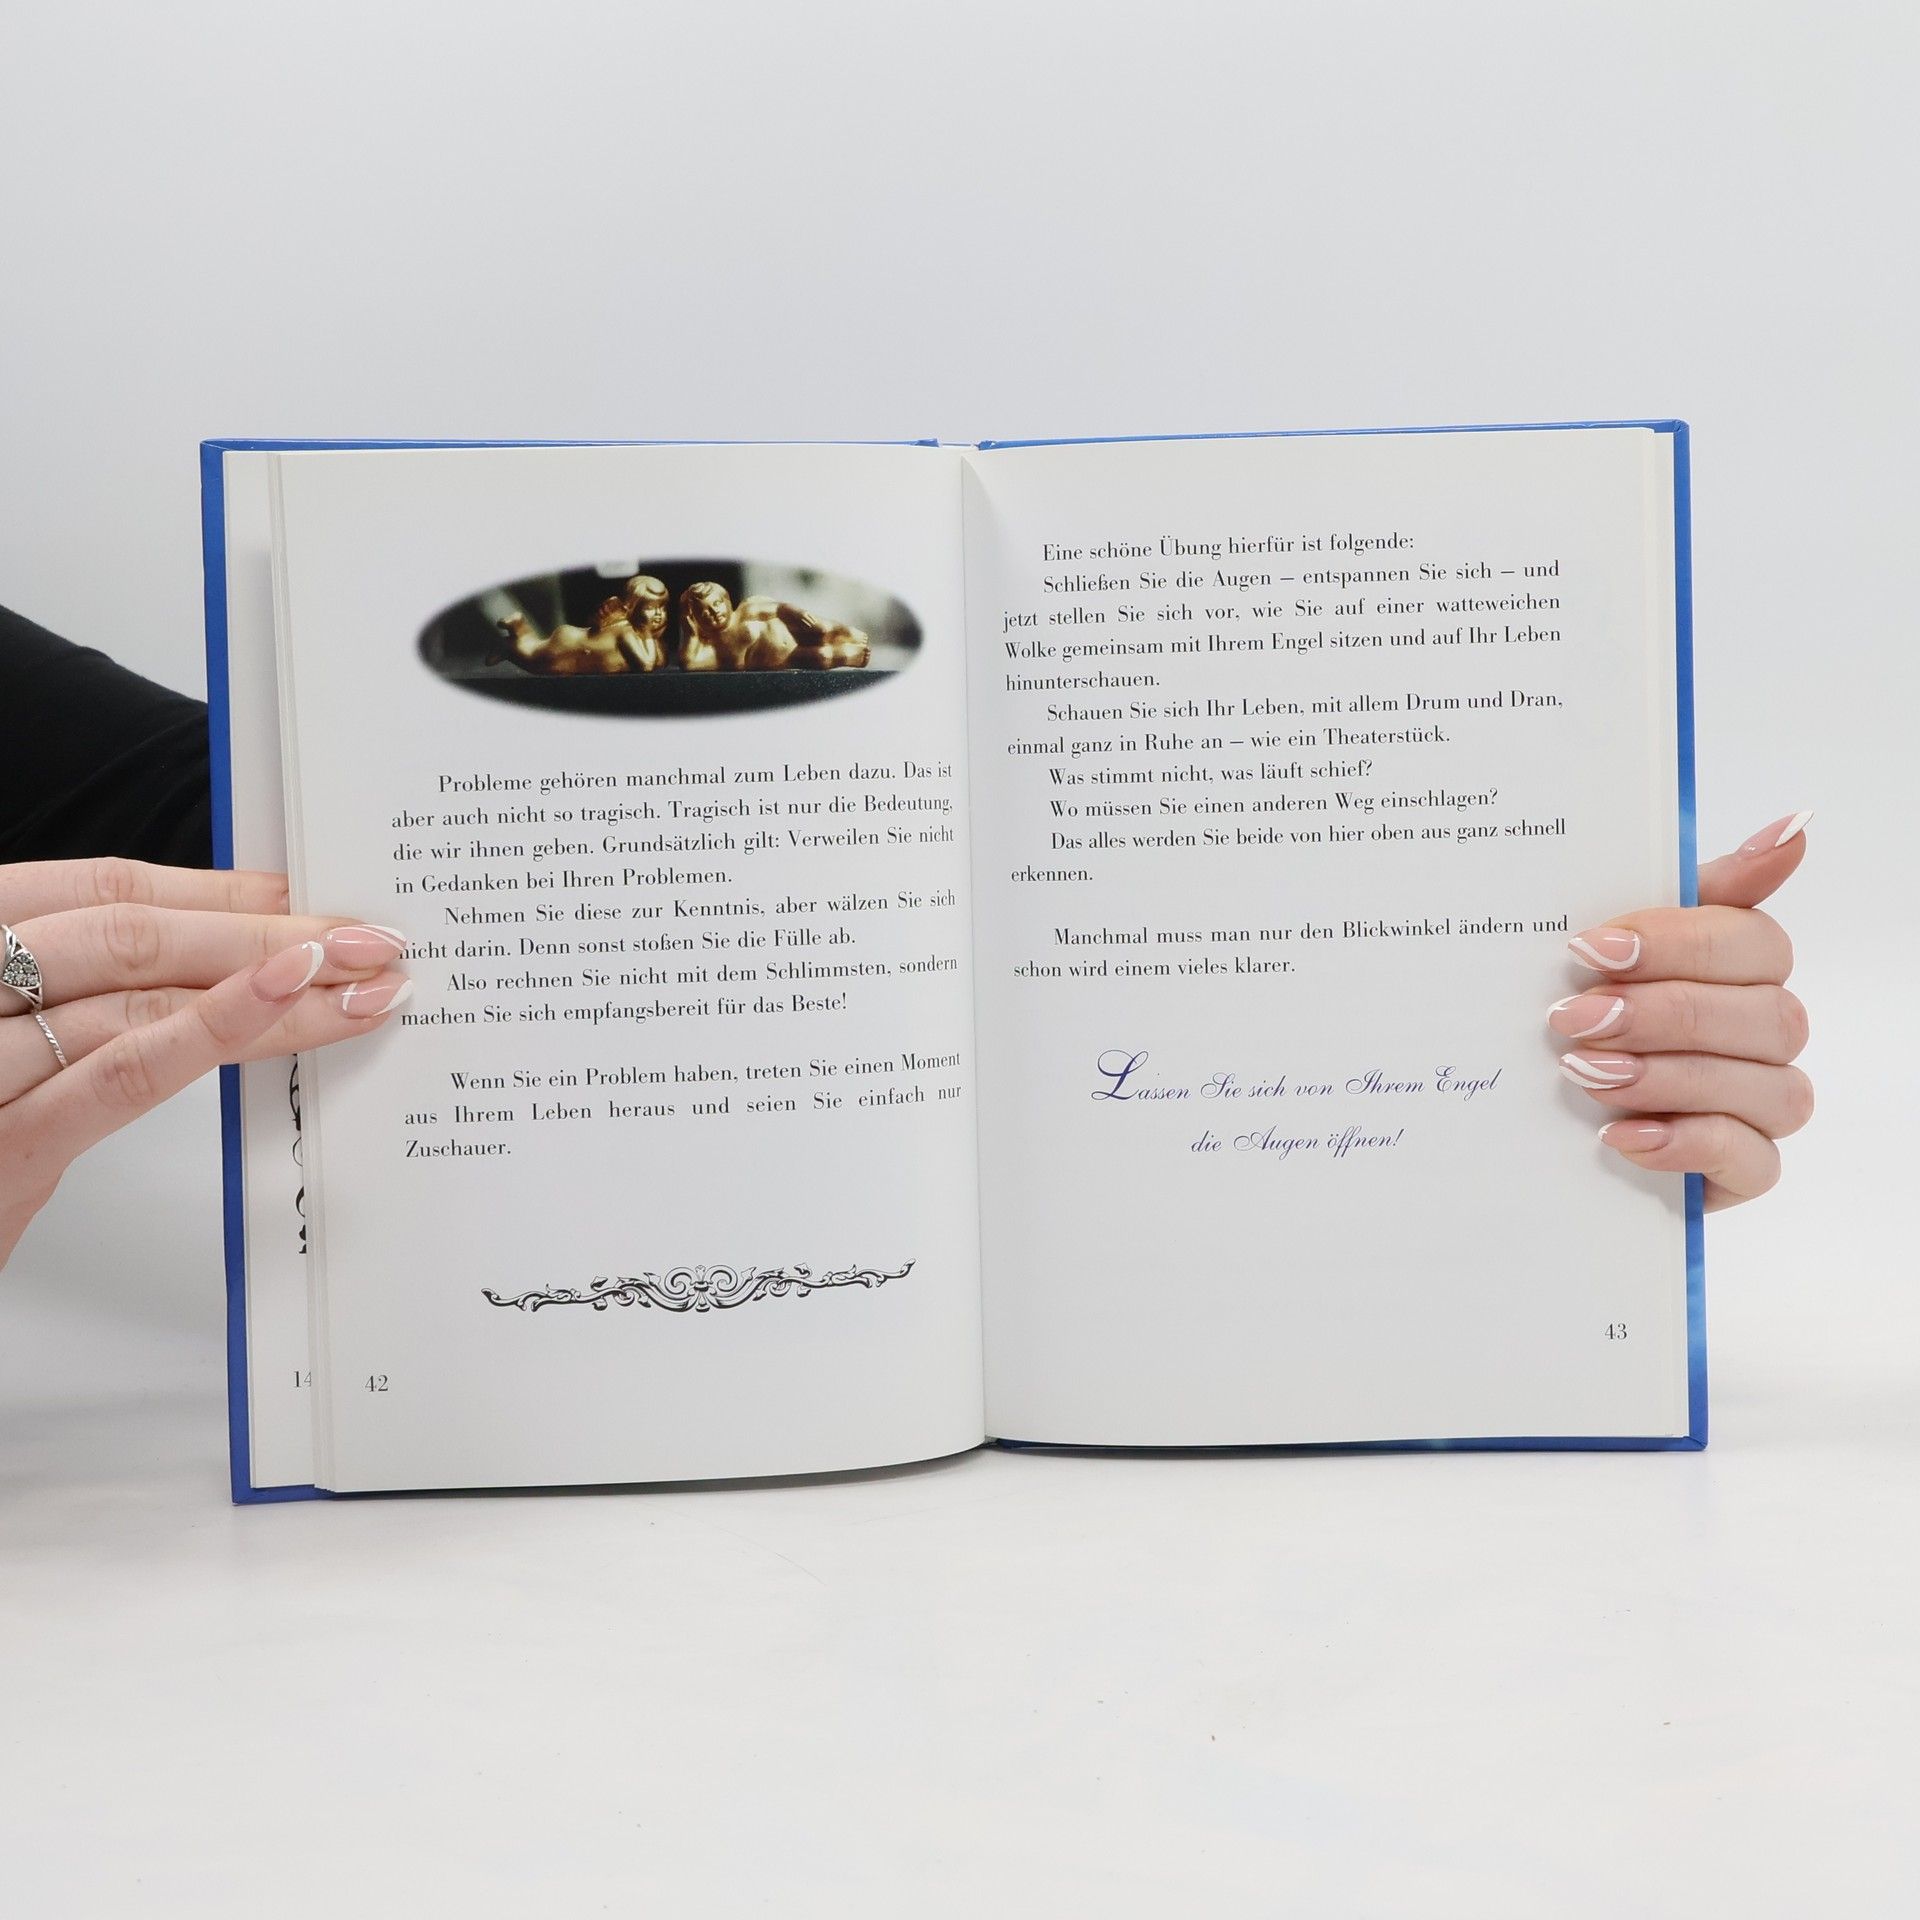 Probleme gehören manchmal zum Leben dazu. Das ist
aber auch nicht so tragisch. Tragisch ist nur die Bedeutung,
die wir ihnen geben. Grundsätzlich gilt: Verweilen Sie nicht
in Gedanken bei Ihren Problemen.
Nehmen Sie diese zur Kenntnis, aber wälzen Sie sich
nicht darin. Denn sonst stoßen Sie die Fülle ab.
Also rechnen Sie nicht mit dem Schlimmsten, sondern
machen Sie sich empfangsbereit für das Beste!
Wenn Sie ein Problem haben, treten Sie einen Moment
aus Ihrem Leben heraus und seien Sie einfach nur
Zuschauer.
14
42
Eine schöne Übung hierfür ist folgende:
Schließen Sie die Augen – entspannen Sie sich – und
jetzt stellen Sie sich vor, wie Sie auf einer watteweichen
Wolke gemeinsam mit Ihrem Engel sitzen und auf Ihr Leben
hinunterschauen.
Schauen Sie sich Ihr Leben, mit allem Drum und Dran,
einmal ganz in Ruhe an – wie ein Theaterstück.
Was stimmt nicht, was läuft schief?
Wo müssen Sie einen anderen Weg einschlagen?
Das alles werden Sie beide von hier oben aus ganz schnell
erkennen.
Manchmal muss man nur den Blickwinkel ändern und
schon wird einem vieles klarer.
Lassen Sie sich von Ihrem Engel
die Augen öffnen!
43